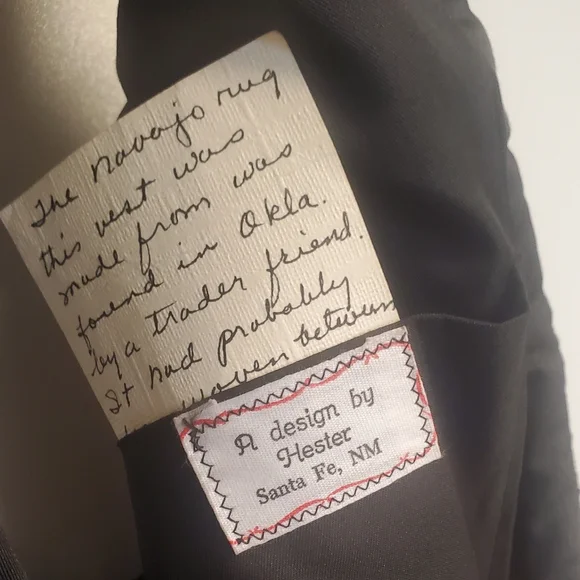 The navajo rug
this vest was
made from was
found in Okla.
by a trader friend.
It had probably
woven between
A design by
Hester
Santa Fe, NM